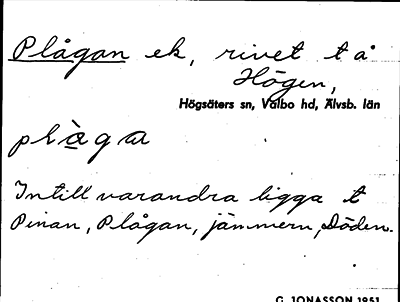 Plågan ek, rivet t å
Högen,
Högsäters sn, Valbo hd, Älvsb. län
plàga
Intill varandra ligga t
Pinan, Plågan, jämmern, Döden.
G. JONASSON 1951